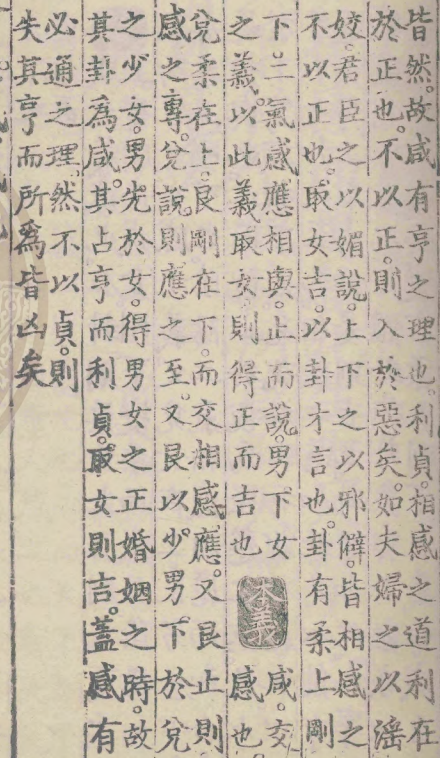 皆然。故咸有亨之理也。利貞。相感之道利在
於正也。不以正。則入於惡矣。如夫婦之以滛
姣。君臣之以媚說。上下之以邪僻。皆相感之
不以正也。取女吉。以卦才言也。卦有柔上剛
下。二氣感應相與。止而說。男下女
之義。以此義取女則得正而吉也
本義
咸。交
感也。
兌柔在上。艮剛在下。而交相感應。又艮止則
感之專。兌說則應之至。又艮以少男下於兌
之少女。男先於女。得男女之正婚姻之時。故
其卦爲咸。其占亨而利貞。取女則吉。蓋感有
必通之理。然不以貞。則
失其亨而所爲皆凶矣